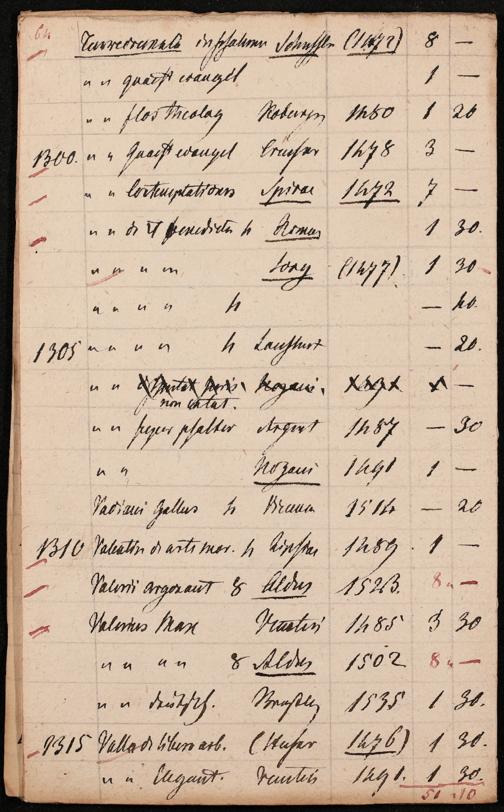 64
Turrecremata in psalmor Schussler (1472) 8 —
" " quaest evangel 1 —
" " flos theolog Koburger 1480 1 20
1300. " " Quaest evangel 1478 3 —
" " Contemplationes Spirae 1472 7 —
" " benedicta 4 Romae 1 30.
" " " " (1477) 1 30
" " " " 4 — 40.
1305 " " " " 4 — 20.
" " —
non exstat.
" " super psalter Argent 1487 — 30
" " 1491 1 —
Vadiani Gallus 4 Vienna 1514 — 20
1310 Valentin de arte mor. 4 Lipsiae 1489. 1 —
Valerii argonaut 8 Aldus 1523. 8. —
Valerius Max Venetiis 1485 3 30
" " " " 8 Aldus 1502 8. —
" " deutsch. 1535 1 30.
1315 Valla de libero arb. (1476) 1 30.
" " Elegant. Venetiis 1491. 1 30
51 . 10